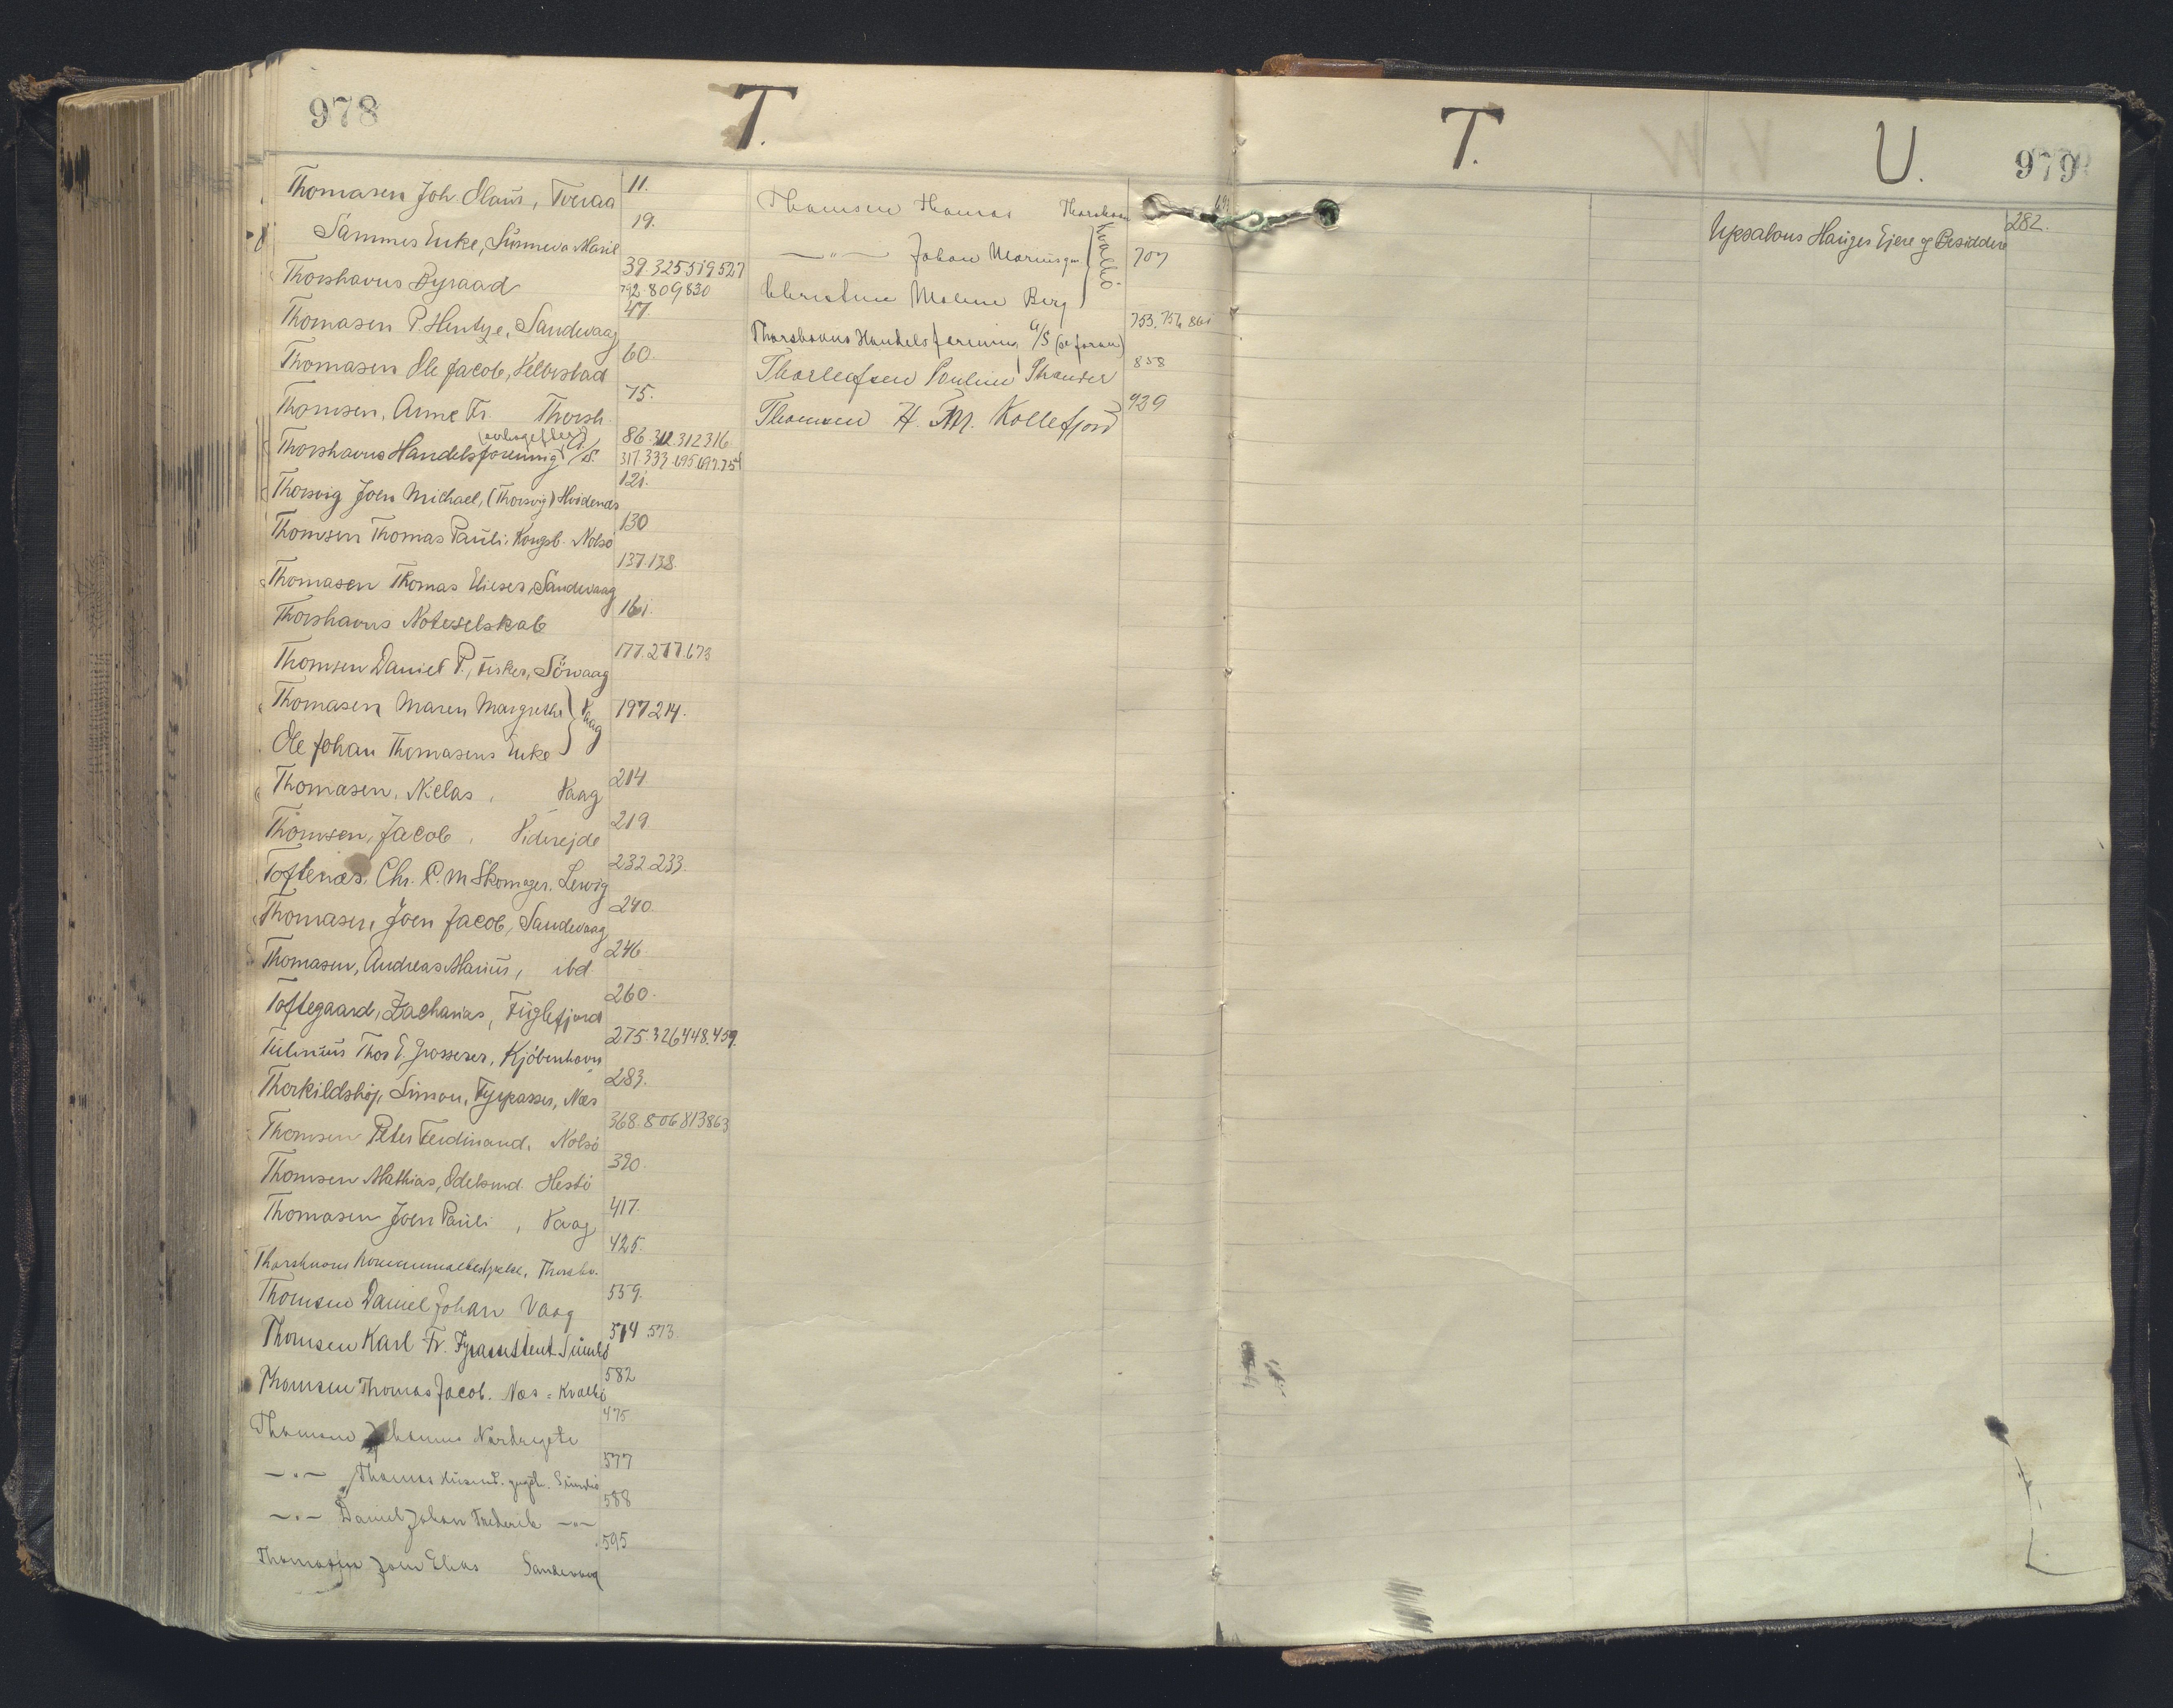 978
T.
Thomasen Joh. Olaus, Tveraa 11.
Sammes Enke, Sunneva Marie 19.
Thorshavns Byraad 39. 325 519 527
792. 809 830
Thomasen P. Hentze, Sandevaag 47.
Thomasen Ole Jacob, Velbestad 60.
Thomsen, Anne Fr. Thorsh. 75.
Thorshavns Handelsforening A/S. 86. 312 316
317. 333. 695 697. 754
Thorsvig Joen Michael, (Thorsvig) Hvidenæs 121.
Thomsen Thomas Pauli, Kongsb. Nolsö 130
Thomasen Thomas Elieser, Sandevaag 137. 138
Thorshavns Noteselskab 161.
Thomsen Daniel P., Fisker, Sörvaag 177. 277. 673
Thomasen Maren Margrethe } Vaag 197 214.
Ole Johan Thomasens Enke
Thomasen, Niclas, Vaag 214.
Thomsen, Jacob, Viderejde 219.
Toftenæs, Chr. P. M Skomager, Lervig 232. 233.
Thomasen, Joen Jacob, Sandevaag 240.
Thomasen, Andreas Marius, ibd 246
Toftegaard, Zacharias, Fuglefjord 260.
Tulinius Thor E. Grosserer, Kjöbenhavn 275. 326 448. 459.
Thorkildshøj, Simon, Fyrpasser, Næs 283.
Thomsen Peter Ferdinand, Nolsö 368. 806 813 863
Thomsen Mathias, Odelsmd. Hestö 390.
Thomasen Joen Pauli, Vaag 417.
Thorshavns Kommunalbestyrelse, Thorshv. 425.
Thomsen Daniel Johan Vaag 559.
Thomsen Karl Fr. Fyrassistent Sumbö 514 573
Thomsen Thomas Jacob. Næs - Kvalbö 582
Thomsen Johannes Nordregöta 475
—"— Thomas 577
—"— Daniel Johan Frederik —"— 588
Thomasen Joen Elias Sandevaag 595
Thomsen Thomas Thorshavn
—"— Johan Marius } Kvalbö. 707
Christine Malene Berg
Thorshavns Handelsforening A/S (se foran) 753. 754 861
Thorleifsen Pouline Strender 858
Thomsen H. M. Kollefjord 939
T.
U.
979
Upsalons Hauges Ejere og Besiddere 282.